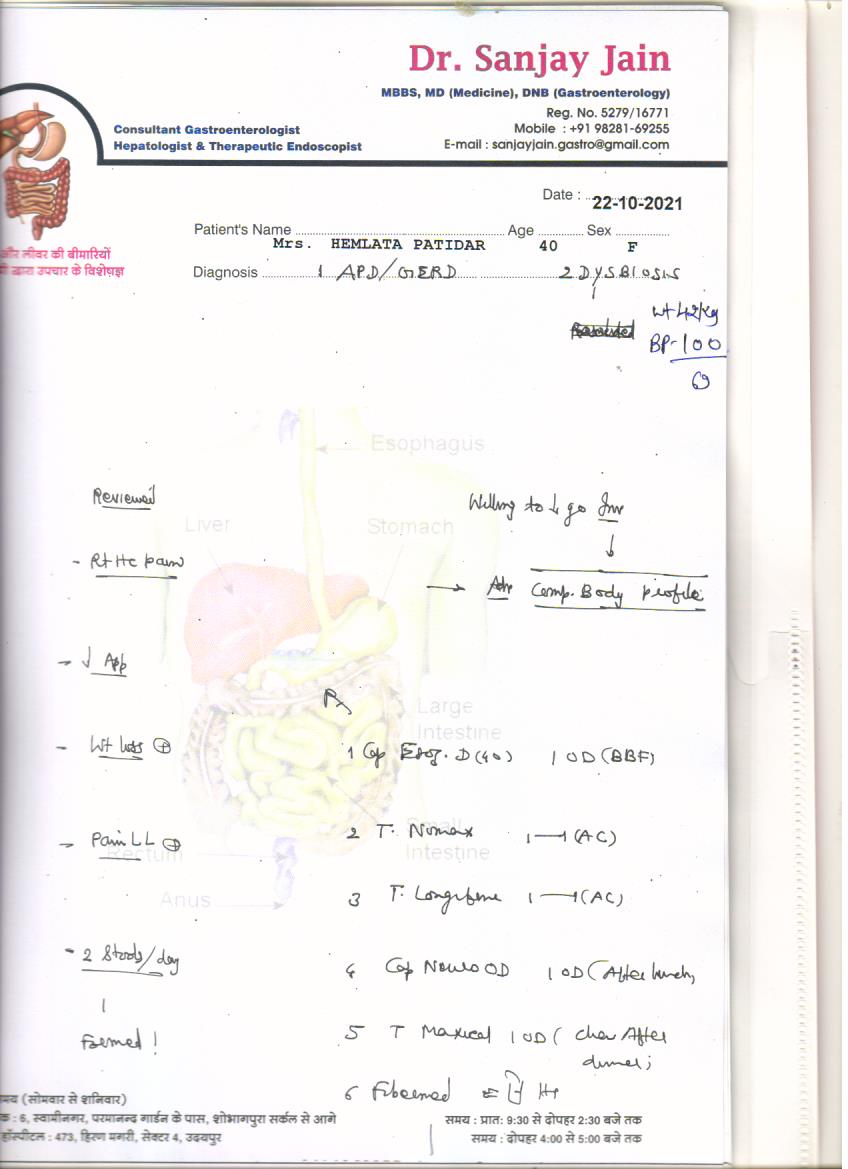 Dr. Sanjay Jain
MBBS, MD (Medicine), DNB (Gastroenterology)
Reg. No. 5279/16771
Mobile : +91 98281-69255
E-mail : sanjayjain.gastro@gmail.com
Consultant Gastroenterologist
Hepatologist & Therapeutic Endoscopist
और लीवर की बीमारियों
द्वारा उपचार के विशेषज्ञ
Date : 22-10-2021
Patient's Name Mrs. HEMLATA PATIDAR Age 40 Sex F
Diagnosis 1 APD/GERD 2 DYSBIOSIS
Wt 42kg
BP-100
69
Esophagus
Reviewed
Willing to ↓ go Inv
Liver
Stomach
↓
- Rt Hc pain
→ Adv Comp. Body profile
- ↓ App
Rx
Large
Intestine
- Wt loss ⊕
1 Cap Esoz. D (40) 1 OD (BBF)
- Pain LL ⊕
2 T. Nomax 1—1 (AC)
Small
Intestine
Rectum
Anus
3 T. 1—1 (AC)
- 2 Stools/day
4 Cap OD 1 OD (After lunch)
Formed !
5 T Maxical 1 OD (chew After
dinner)
6 Hs
मय (सोमवार से शनिवार)
क : 6, स्वामीनगर, परमानन्द गार्डन के पास, शोभागपुरा सर्कल से आगे
हॉस्पीटल : 473, हिरण मगरी, सेक्टर 4, उदयपुर
समय : प्रातः 9:30 से दोपहर 2:30 बजे तक
समय : दोपहर 4:00 से 5:00 बजे तक